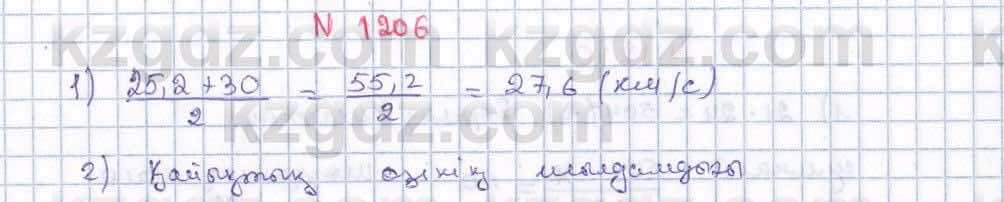 N 1206
1) \frac{25,2+30}{2} = \frac{55,2}{2} = 27,6 (км/с)
2) Қайықтың өзінің жылдамдығы
kzgdz.com kzgdz.com kzgdz.com
kzgdz.com kzgdz.com